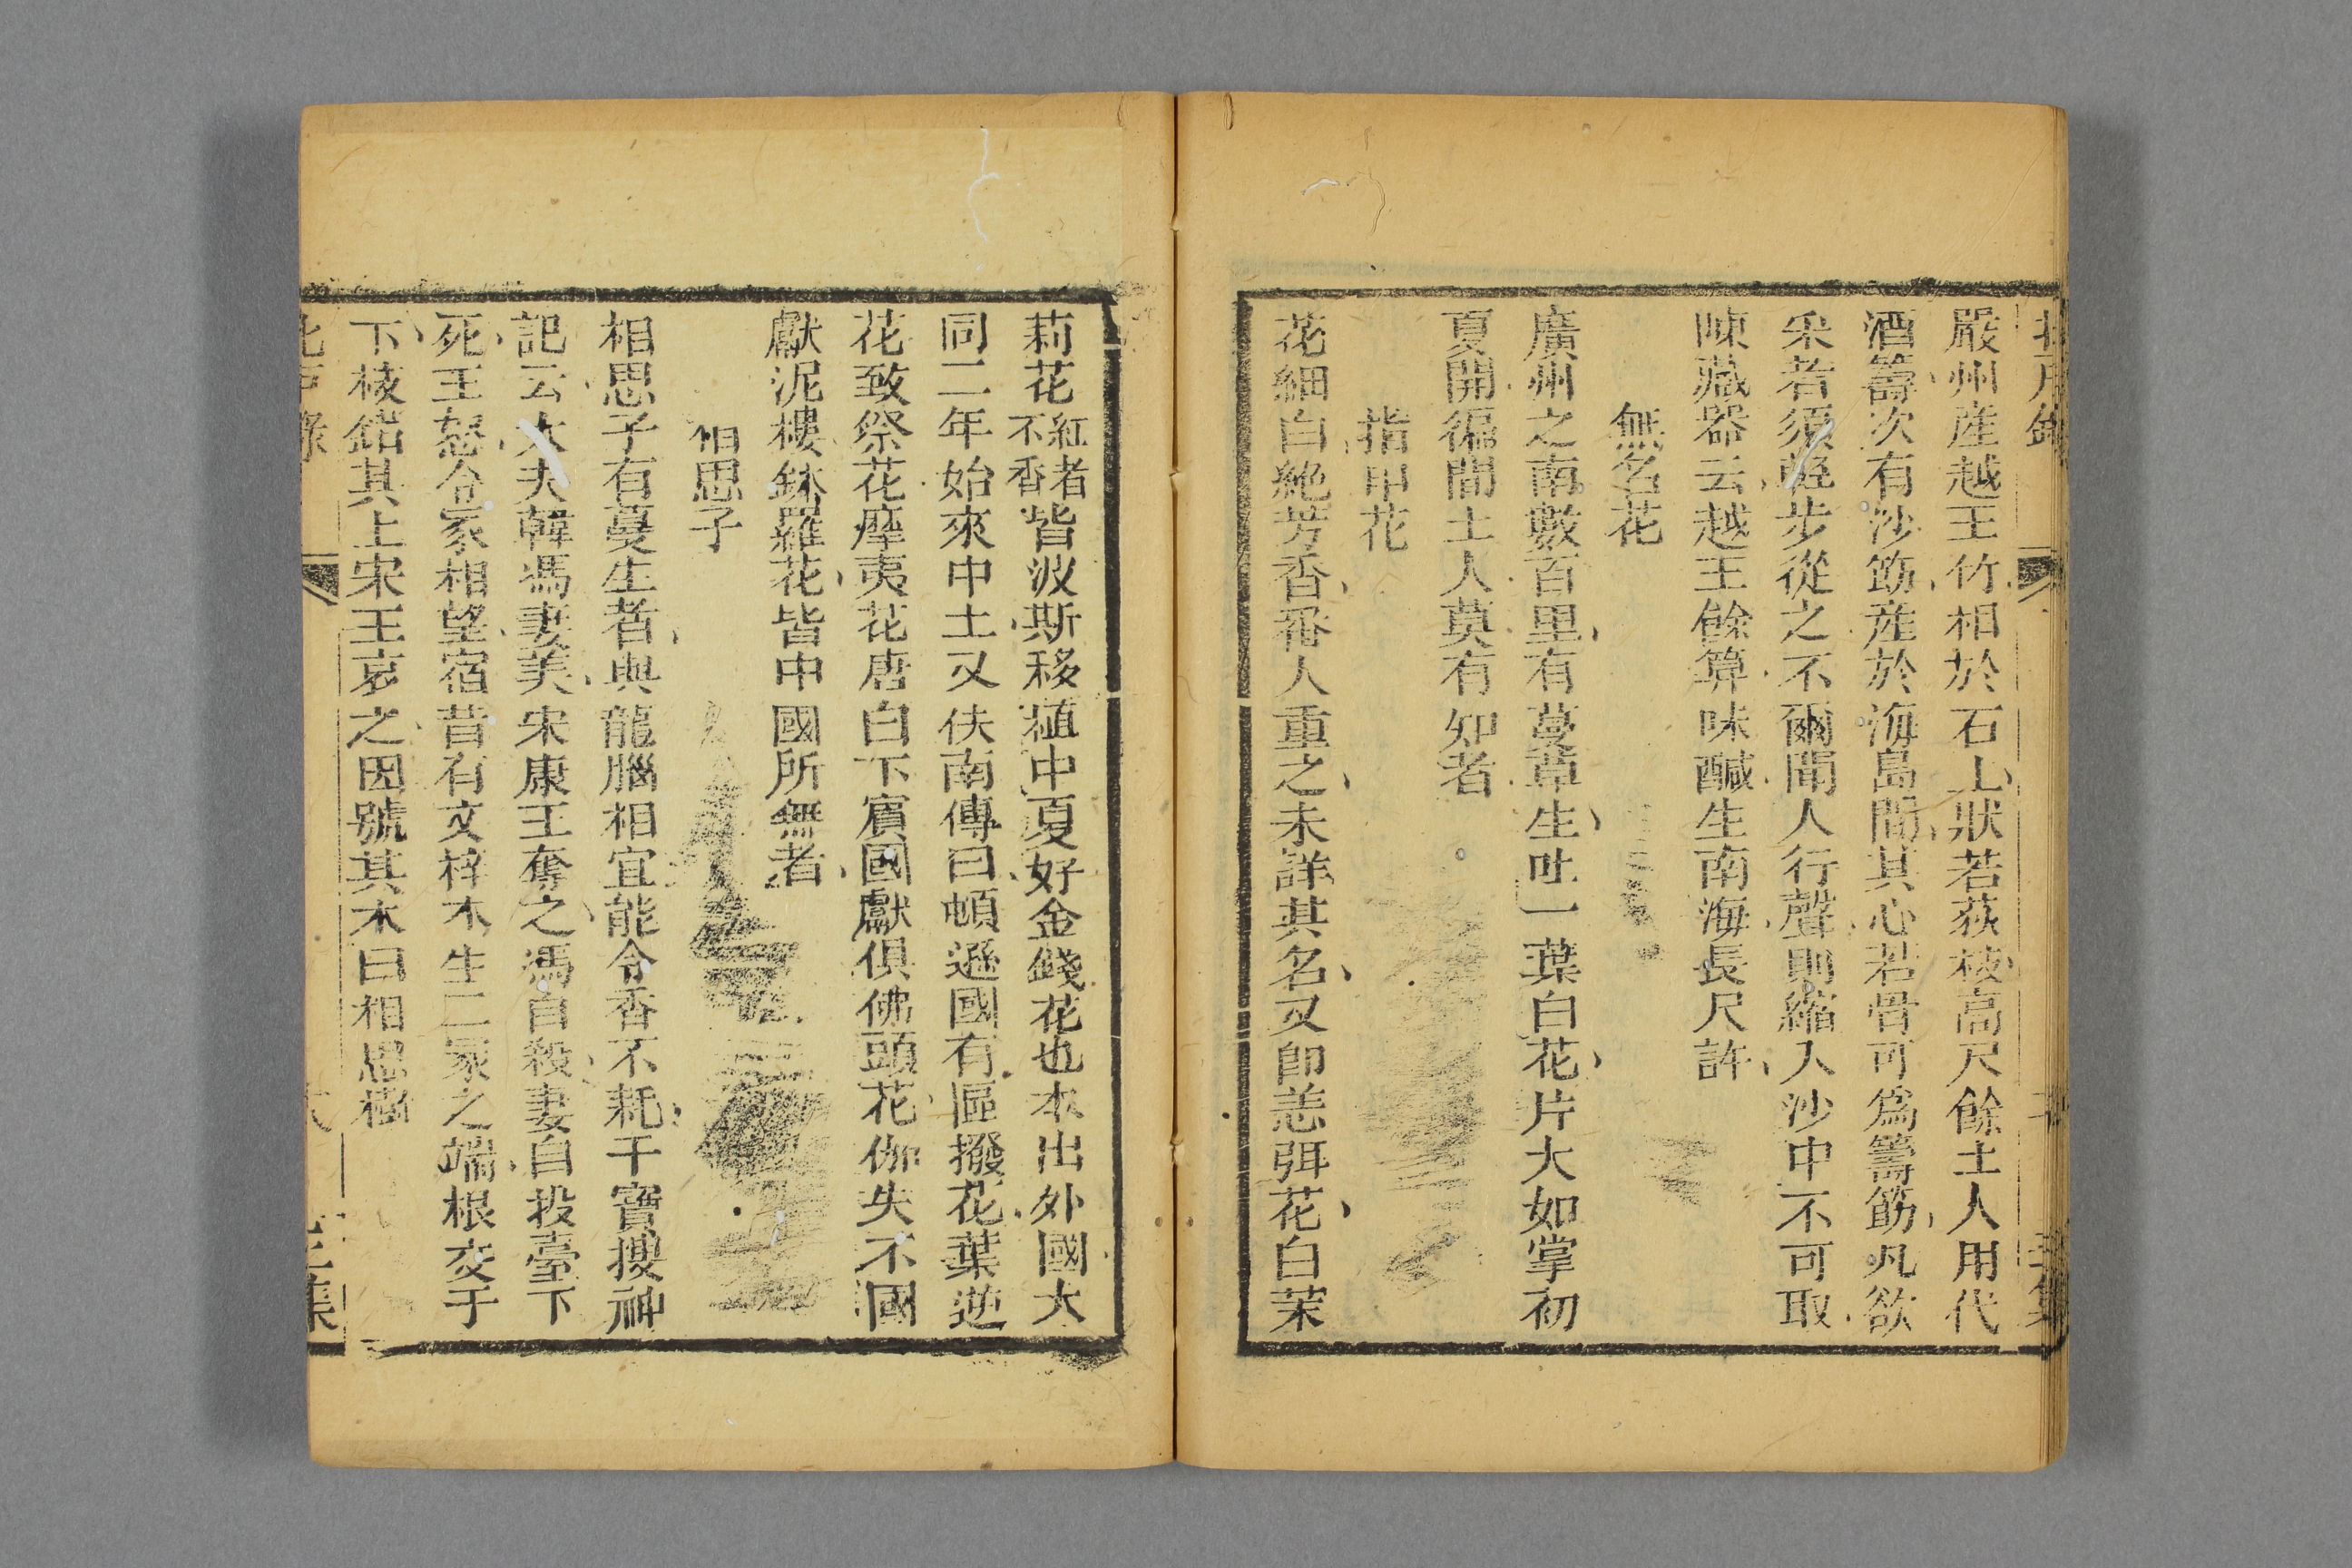 嚴州産越王竹相於石上狀若荻枝高尺餘土人用代
酒籌次有沙筯産於海島間其心若骨可爲籌筯凡欲
采者須輕步從之不爾聞人行聲則縮入沙中不可取
陳藏器云越王餘筭味醎生南海長尺許
無名花
廣州之南數百里有蔓草生吐一葉白花片大如掌初
夏開徧問土人莫有知者
指甲花
花細白絶芳香番人重之未詳其名又即恙弭花白茉
莉花紅者不香皆波斯移植中夏好金錢花也本出外國大
同二年始來中土又伕南傳曰頓遜國有區撥花葉逆
花致祭花摩夷花唐白下賓國獻俱佛頭花伽失不國
獻泥樓鉢羅花皆中國所無者
相思子
相思子有蔓生者與龍腦相宜能令香不耗干寶搜神
記云大夫韓馮妻美宋康王奪之馮自殺妻自投臺下
死王怒令冢相望宿昔有文梓木生二冢之端根交于
下枝錯其上宋王哀之因號其木曰相思樹
北戸錄